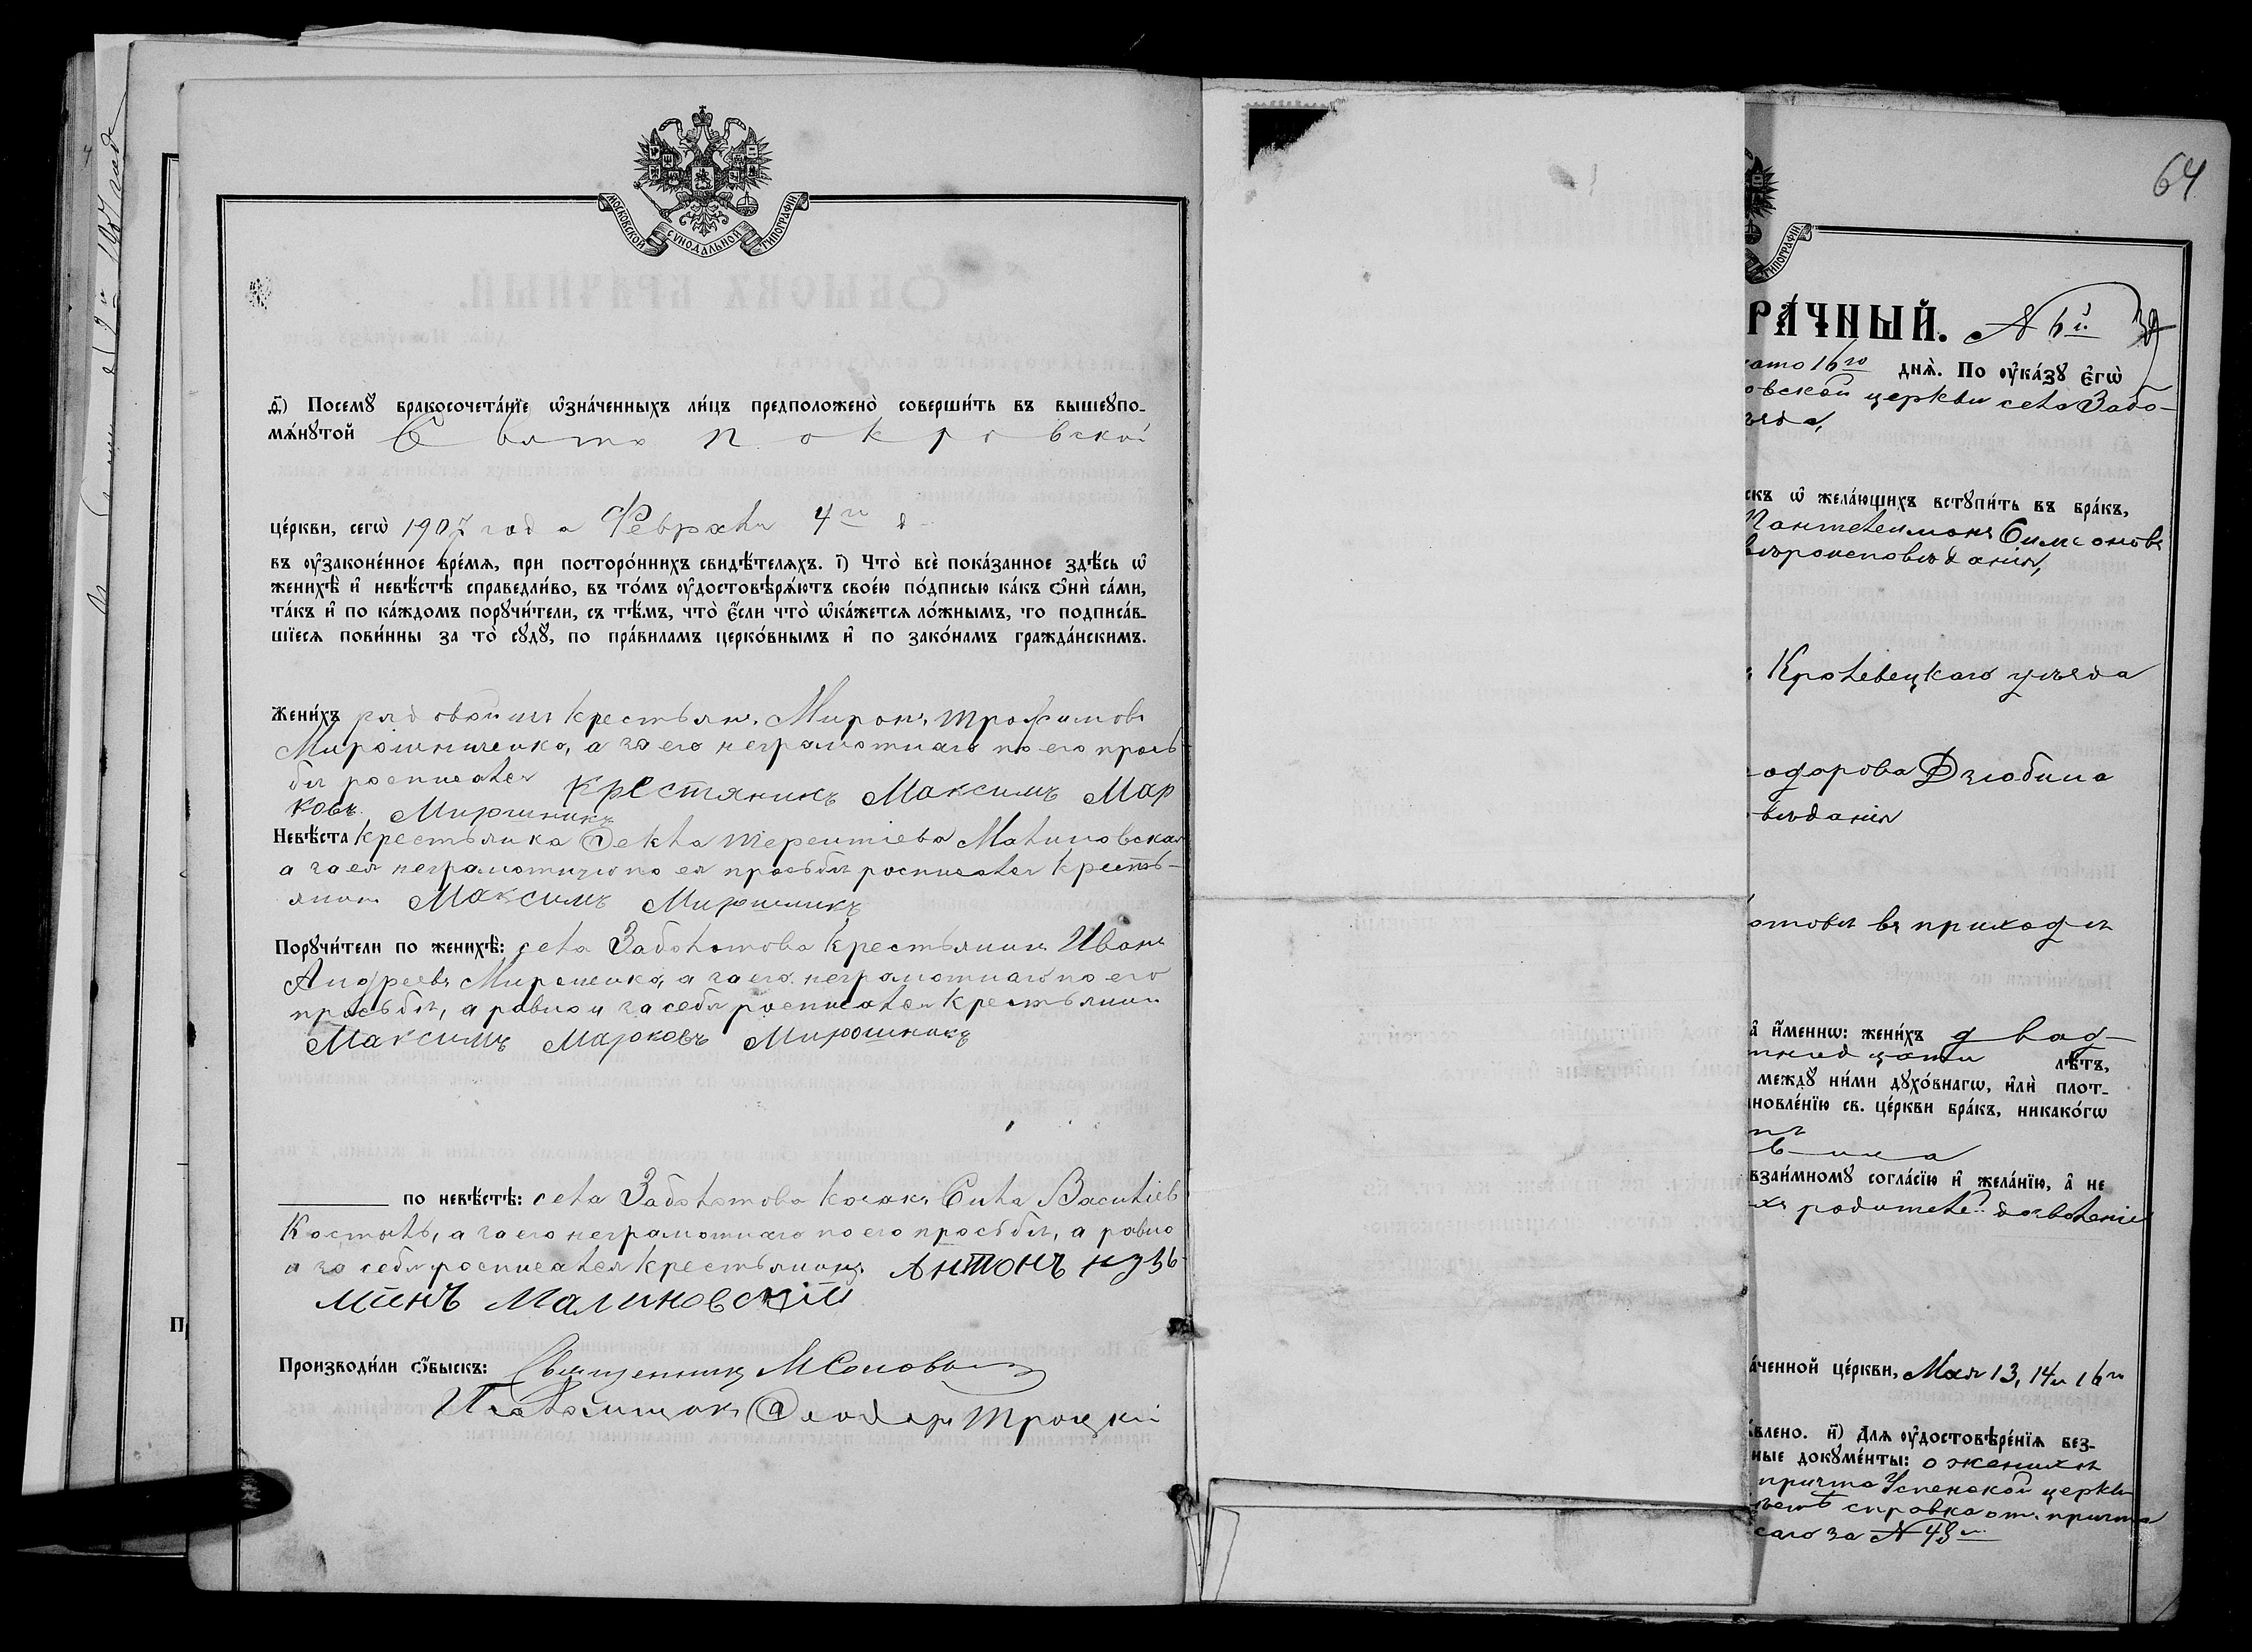 МОСКОВСКОЙ СѴНОДАЛЬНОЙ ТИПОГРАФІИ
ѳ҃) Посемꙋ̀ бракосочета́нїе ѡ҆зна́ченныхъ ли́цъ предположено̀ соверши́ть въ вышеꙋпо-
мѧ́нꙋтой Свято Покровской
це́ркви, сегѡ̀ 1907 года Февраля 4го д
въ ᲂу҆зако́ненное вре́мѧ, при посторо́ннихъ свидѣ́телѧхъ. і҃) Что̀ всѐ пока́занное здѣ́сь ѡ҆
женихѣ̀ и҆ невѣ́стѣ справедли́во, въ то́мъ ᲂу҆достовѣрѧ́ютъ свое́ю по́дписью ка́къ ѻ҆нѝ са́ми,
та́къ и҆ по ка́ждомъ порꙋчи́тели, съ тѣ́мъ, что̀ є҆́сли что̀ ѡ҆ка́жетсѧ ло́жнымъ, то подписа́в-
шїесѧ пови́нны за то̀ сꙋдꙋ̀, по пра́виламъ церко́внымъ и҆ по зако́намъ гражда́нскимъ.
Жени́хъ рядовой изъ крестьян. Миронъ Трофимовъ
Мирошниченко, а за его неграмотнаго по его прось-
бѣ росписался Крестянинъ Максимъ Мар
ковъ Мирошникъ
Невѣ́ста крестьянка Ѳекла Терентіева Малиновская
а за ея неграмотную по ея просьбѣ росписался кресть-
янинъ Максимъ Мирошникъ
Порꙋчи́тели по женихѣ̀: села Заболотова крестьянинъ Иванъ
Андреевъ Мироненко, а за его неграмотнаго по его
просьбѣ, а равно и за себя росписался крестьянинъ
Максимъ Марковъ Мирошникъ
по невѣ́стѣ: села Заболотова козакъ Сила Василіев
Костыль, а за его неграмотнаго по его просьбѣ, а равно
и за себя росписался крестьянинъ Антонъ кузь-
минъ Малиновский
Производи́ли ѻ҆́быскъ: Священникъ М
Псаломщикъ Ѳеодоръ Троцкій
64
ТИПОГРАФІИ
РА́ЧНЫЙ. № 6й
16го днѧ̀. По ᲂу҆ка́зꙋ є҆гѡ̀
овской церкви села Забо-
ѣзда,
скъ ѡ҆ жела́ющихъ встꙋпи́ть въ бра́къ,
Пантелеимонъ Симеоновъ
вѣроисповѣданія,
Кролевецкаго уѣзда
одорова Дзюбина
вѣданія
отовѣ въ приходѣ
а҆ и҆́меннѡ: жени́хъ двад-
тнадцати лѣ́тъ,
междꙋ̀ ни́ми дꙋхо́внагѡ, и҆лѝ плот-
новле́нїю св. це́ркви бра́къ, никако́гѡ
взаи́мномꙋ согла́сїю и҆ жела́нїю, а҆ не
родителе дозволеніе
а́ченной це́ркви, Мая 13, 14 и 16го
влено. и҃) Для ᲂу҆достовѣре́нїѧ без-
ные докꙋме́нты: о женихѣ
причта Успенской церкви
справка от. причта
саго за № 48